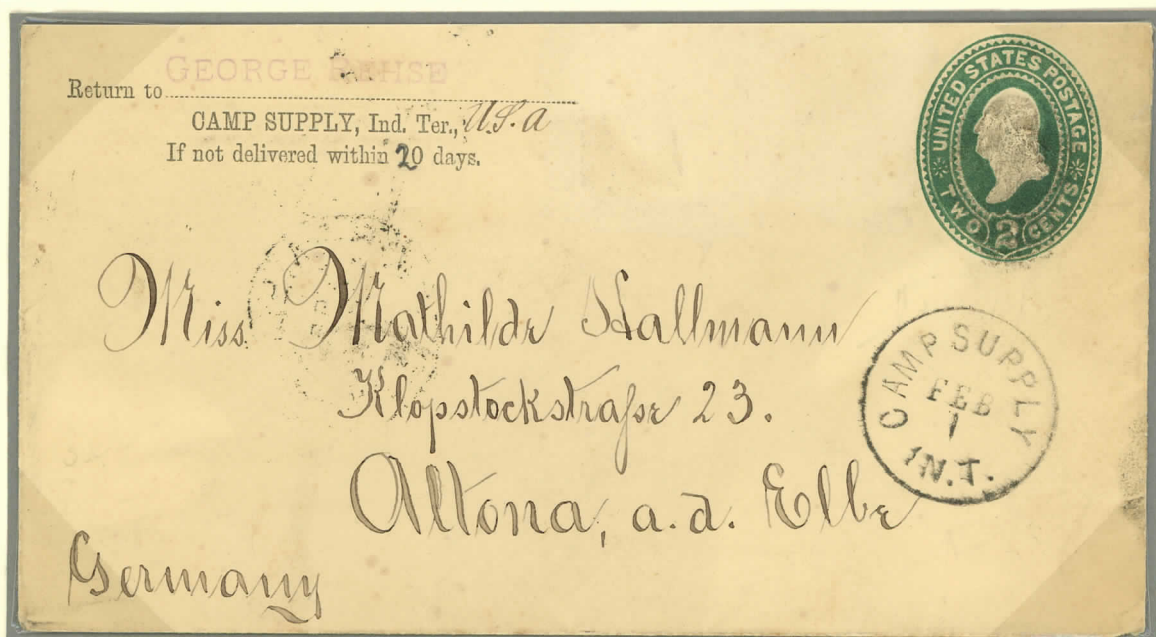 GEORGE REHSE
Return to
CAMP SUPPLY, Ind. Ter., U.S.a
If not delivered within 20 days.
UNITED STATES POSTAGE
TWO 2 CENTS
Miss Mathilde Hallmann
Klopstockstraße 23.
Altona, a.d. Elbe
Germany
CAMP SUPPLY
FEB
1
IN.T.